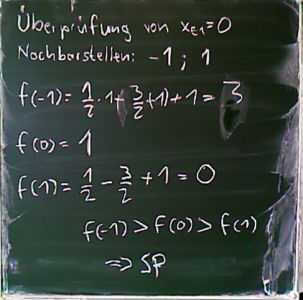 Überprüfung von x_E1=0
Nachbarstellen: -1 ; 1
f(-1) = 1/2 · 1 + 3/2 · (+1) + 1 = 3
f(0) = 1
f(1) = 1/2 - 3/2 + 1 = 0
f(-1) > f(0) > f(1)
⇒ SP